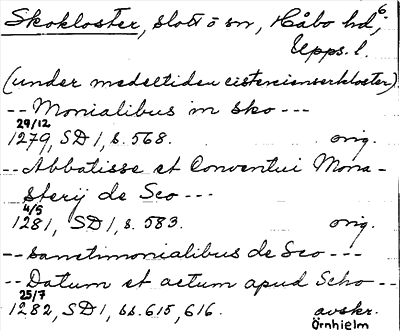 Skokloster, slott o sn, Håbo hd, 6
Upps. l.
(under medeltiden cistercienserkloster)
-- Monialibus in sko ---
29/12
1279, SD 1, s. 568. orig.
-- Abbatisse et Conventui Mona-
sterij de Sco ---
4/5
1281, SD 1, s. 583. orig.
-- sanctimonialibus de Sco ---
-- Datum et actum apud Scho --
25/7
1282, SD 1, ss. 615, 616. avskr.
Örnhielm